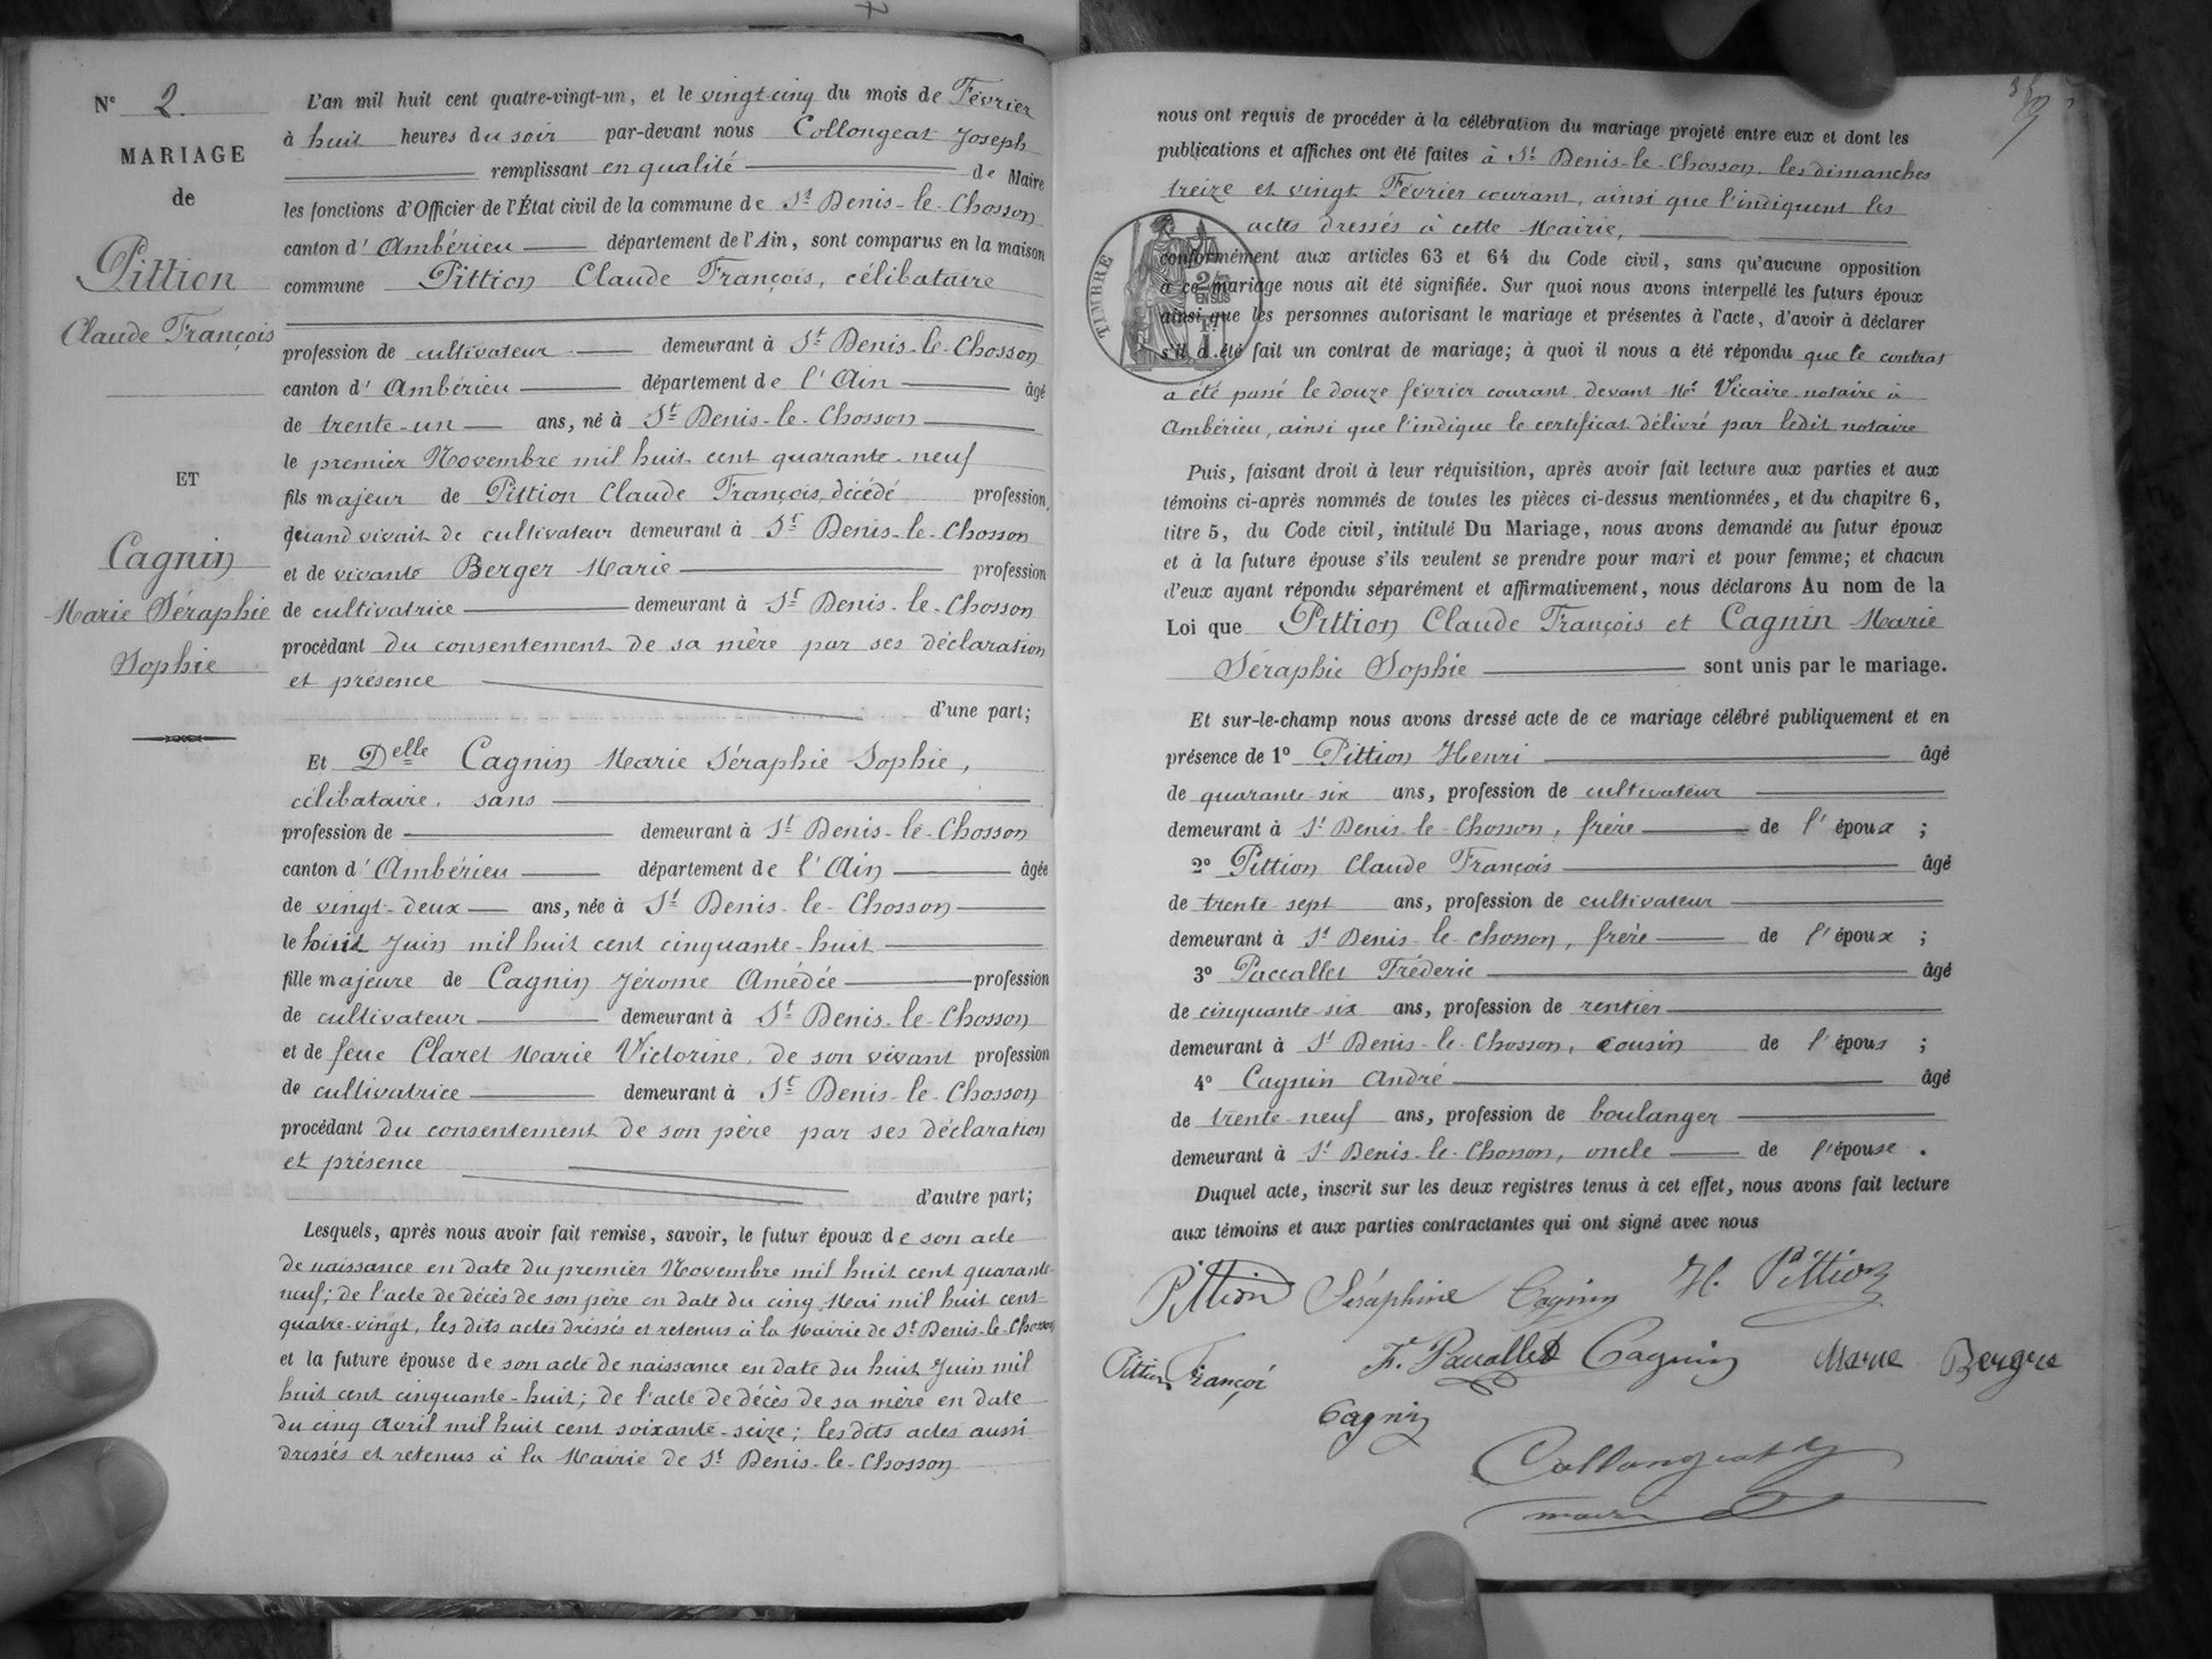 N° 2.
MARIAGE
de
Pittion
Claude François
ET
Cagnin
Marie Séraphie
Sophie
L'an mil huit cent quatre-vingt-un, et le vingt-cinq du mois de Février
à huit heures du soir par-devant nous Collongeat Joseph
remplissant en qualité de Maire
les fonctions d'Officier de l'État civil de la commune de St Denis-le-Chosson
canton d'Ambérieu département de l'Ain, sont comparus en la maison
commune Pittion Claude François, célibataire
profession de cultivateur demeurant à St Denis-le-Chosson
canton d'Ambérieu département de l'Ain âgé
de trente-un ans, né à St Denis-le-Chosson
le premier Novembre mil huit cent quarante-neuf
fils majeur de Pittion Claude François, décédé profession,
quand vivait de cultivateur demeurant à St Denis-le-Chosson
et de vivante Berger Marie profession
de cultivatrice demeurant à St Denis-le-Chosson
procédant du consentement de sa mère par ses déclaration
et présence
d'une part;
Et Delle Cagnin Marie Séraphie Sophie,
célibataire, sans
profession de demeurant à St Denis-le-Chosson
canton d'Ambérieu département de l'Ain âgée
de vingt-deux ans, née à St Denis-le-Chosson
le huit Juin mil huit cent cinquante-huit
fille majeure de Cagnin Jérome Amédée profession
de cultivateur demeurant à St Denis-le-Chosson
et de feue Claret Marie Victorine, de son vivant profession
de cultivatrice demeurant à St Denis-le-Chosson
procédant du consentement de son père par ses déclaration
et présence
d'autre part;
Lesquels, après nous avoir fait remise, savoir, le futur époux de son acte
de naissance en date du premier Novembre mil huit cent quarante-
neuf; de l'acte de décès de son père en date du cinq Mai mil huit cent
quatre-vingt, les dits actes dressés et retenus à la Mairie de St Denis-le-Chosson
et la future épouse de son acte de naissance en date du huit Juin mil
huit cent cinquante-huit; de l'acte de décès de sa mère en date
du cinq Avril mil huit cent soixante-seize; les dits actes aussi
dressés et retenus à la Mairie de St Denis-le-Chosson
nous ont requis de procéder à la célébration du mariage projeté entre eux et dont les
publications et affiches ont été faites à St Denis-le-Chosson, les dimanches
treize et vingt Février courant, ainsi que l'indiquent les
actes dressés à cette Mairie,
TIMBRE
2/10 EN SUS
conformément aux articles 63 et 64 du Code civil, sans qu'aucune opposition
à ce mariage nous ait été signifiée. Sur quoi nous avons interpellé les futurs époux
ainsi que les personnes autorisant le mariage et présentes à l'acte, d'avoir à déclarer
s'il a été fait un contrat de mariage; à quoi il nous a été répondu que le contrat
a été passé le douze février courant devant Me Vicaire notaire à
Ambérieu, ainsi que l'indique le certificat délivré par ledit notaire
Puis, faisant droit à leur réquisition, après avoir fait lecture aux parties et aux
témoins ci-après nommés de toutes les pièces ci-dessus mentionnées, et du chapitre 6,
titre 5, du Code civil, intitulé Du Mariage, nous avons demandé au futur époux
et à la future épouse s'ils veulent se prendre pour mari et pour femme; et chacun
d'eux ayant répondu séparément et affirmativement, nous déclarons Au nom de la
Loi que Pittion Claude François et Cagnin Marie
Séraphie Sophie sont unis par le mariage.
Et sur-le-champ nous avons dressé acte de ce mariage célébré publiquement et en
présence de 1° Pittion Henri âgé
de quarante-six ans, profession de cultivateur
demeurant à St Denis-le-Chosson, frère de l'époux ;
2° Pittion Claude François âgé
de trente-sept ans, profession de cultivateur
demeurant à St Denis-le-Chosson, frère de l'époux ;
3° Paccallet Fréderic âgé
de cinquante-six ans, profession de rentier
demeurant à St Denis-le-Chosson, cousin de l'époux ;
4° Cagnin André âgé
de trente-neuf ans, profession de boulanger
demeurant à St Denis-le-Chosson, oncle de l'épouse .
Duquel acte, inscrit sur les deux registres tenus à cet effet, nous avons fait lecture
aux témoins et aux parties contractantes qui ont signé avec nous
Pittion Séraphine Cagnin H. Pittion
Pittion Françoi F. Paccallet Cagnin Marie Berger
Cagnin
Collongeat J
maire